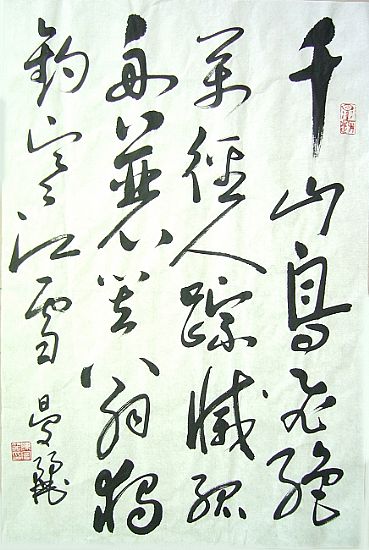 千山鳥飛絶
萬徑人踪滅孤
舟蓑笠翁獨
釣寒江雪
曼